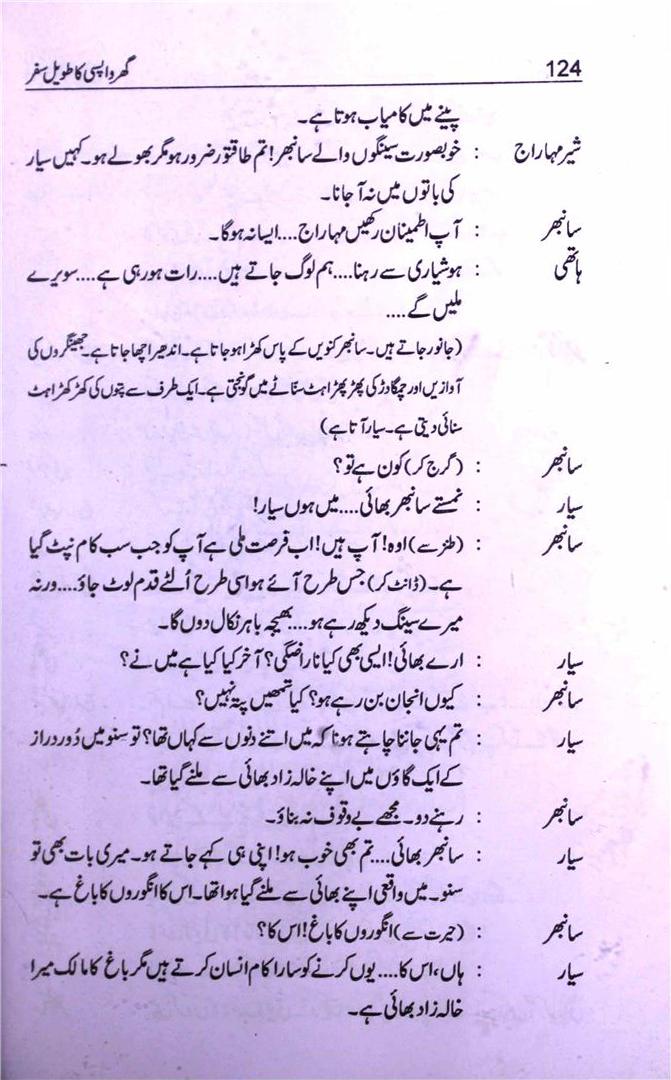 124 گھر واپسی کا طویل سفر
پینے میں کامیاب ہوتا ہے۔
شیر مہاراج : خوبصورت سینگوں والے سانبھر! تم طاقتور ضرور ہو مگر بھولے ہو۔ کہیں سیار
کی باتوں میں نہ آ جانا۔
سانبھر : آپ اطمینان رکھیں مہاراج.... ایسا نہ ہوگا۔
ہاتھی : ہوشیاری سے رہنا.... ہم لوگ جاتے ہیں.... رات ہو رہی ہے.... سویرے
ملیں گے....
(جانور جاتے ہیں۔ سانبھر کنویں کے پاس کھڑا ہو جاتا ہے۔ اندھیرا چھا جاتا ہے۔ جھینگروں کی
آوازیں اور چمگادڑ کی پھڑپھڑاہٹ سنّاٹے میں گونجتی ہے۔ ایک طرف سے پتوں کی کھڑکھڑاہٹ
سنائی دیتی ہے۔ سیار آتا ہے)
سانبھر : (گرج کر) کون ہے تو؟
سیار : نمستے سانبھر بھائی.... میں ہوں سیار!
سانبھر : (طنز سے) اوہ! آپ ہیں! اب فرصت ملی ہے آپ کو جب سب کام نپٹ گیا
ہے۔ (ڈانٹ کر) جس طرح آئے ہو اسی طرح اُلٹے قدم لوٹ جاؤ.... ورنہ
میرے سینگ دیکھ رہے ہو.... بھیجہ باہر نکال دوں گا۔
سیار : ارے بھائی! ایسی بھی کیا ناراضگی؟ آخر کیا کیا ہے میں نے؟
سانبھر : کیوں انجان بن رہے ہو؟ کیا تمھیں پتہ نہیں؟
سیار : تم یہی جاننا چاہتے ہو نا کہ میں اتنے دنوں سے کہاں تھا؟ تو سنو میں دُور دراز
کے ایک گاؤں میں اپنے خالہ زاد بھائی سے ملنے گیا تھا۔
سانبھر : رہنے دو۔ مجھے بے وقوف نہ بناؤ۔
سیار : سانبھر بھائی.... تم بھی خوب ہو! اپنی ہی کہے جاتے ہو۔ میری بات بھی تو
سنو۔ میں واقعی اپنے بھائی سے ملنے گیا ہوا تھا۔ اس کا انگوروں کا باغ ہے۔
سانبھر : (حیرت سے) انگوروں کا باغ! اس کا؟
سیار : ہاں، اس کا.... یوں کرنے کو سارا کام انسان کرتے ہیں مگر باغ کا مالک میرا
خالہ زاد بھائی ہے۔